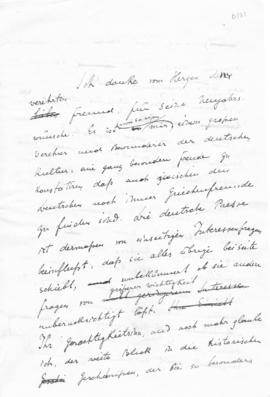 Ich danke von Herzen dem
verehrten Freund für seine Neujahrs
wünsche. Es ist mir, einem großen
Verehrer und Bewunderer der deutschen
Kultur, eine ganz besondere Freude zu
konstatieren daß auch zwischen den
Deutschen noch immer Griechenfreunde
zu finden sind. Die deutsche Presse
ist dermaßen von einseitigen Interessenfragen
beeinflußt, daß sie alles übrige bei Seite
schiebt, und unbekümmert ob sie andere
geringerer Wichtigkeit
fragen von
unberücksichtigt läßt.
Ihr Gerechtigkeitssinn, und noch mehr glaube
ich, der weite Blick in die historischen
Geschehnissen, der Sie so besonders